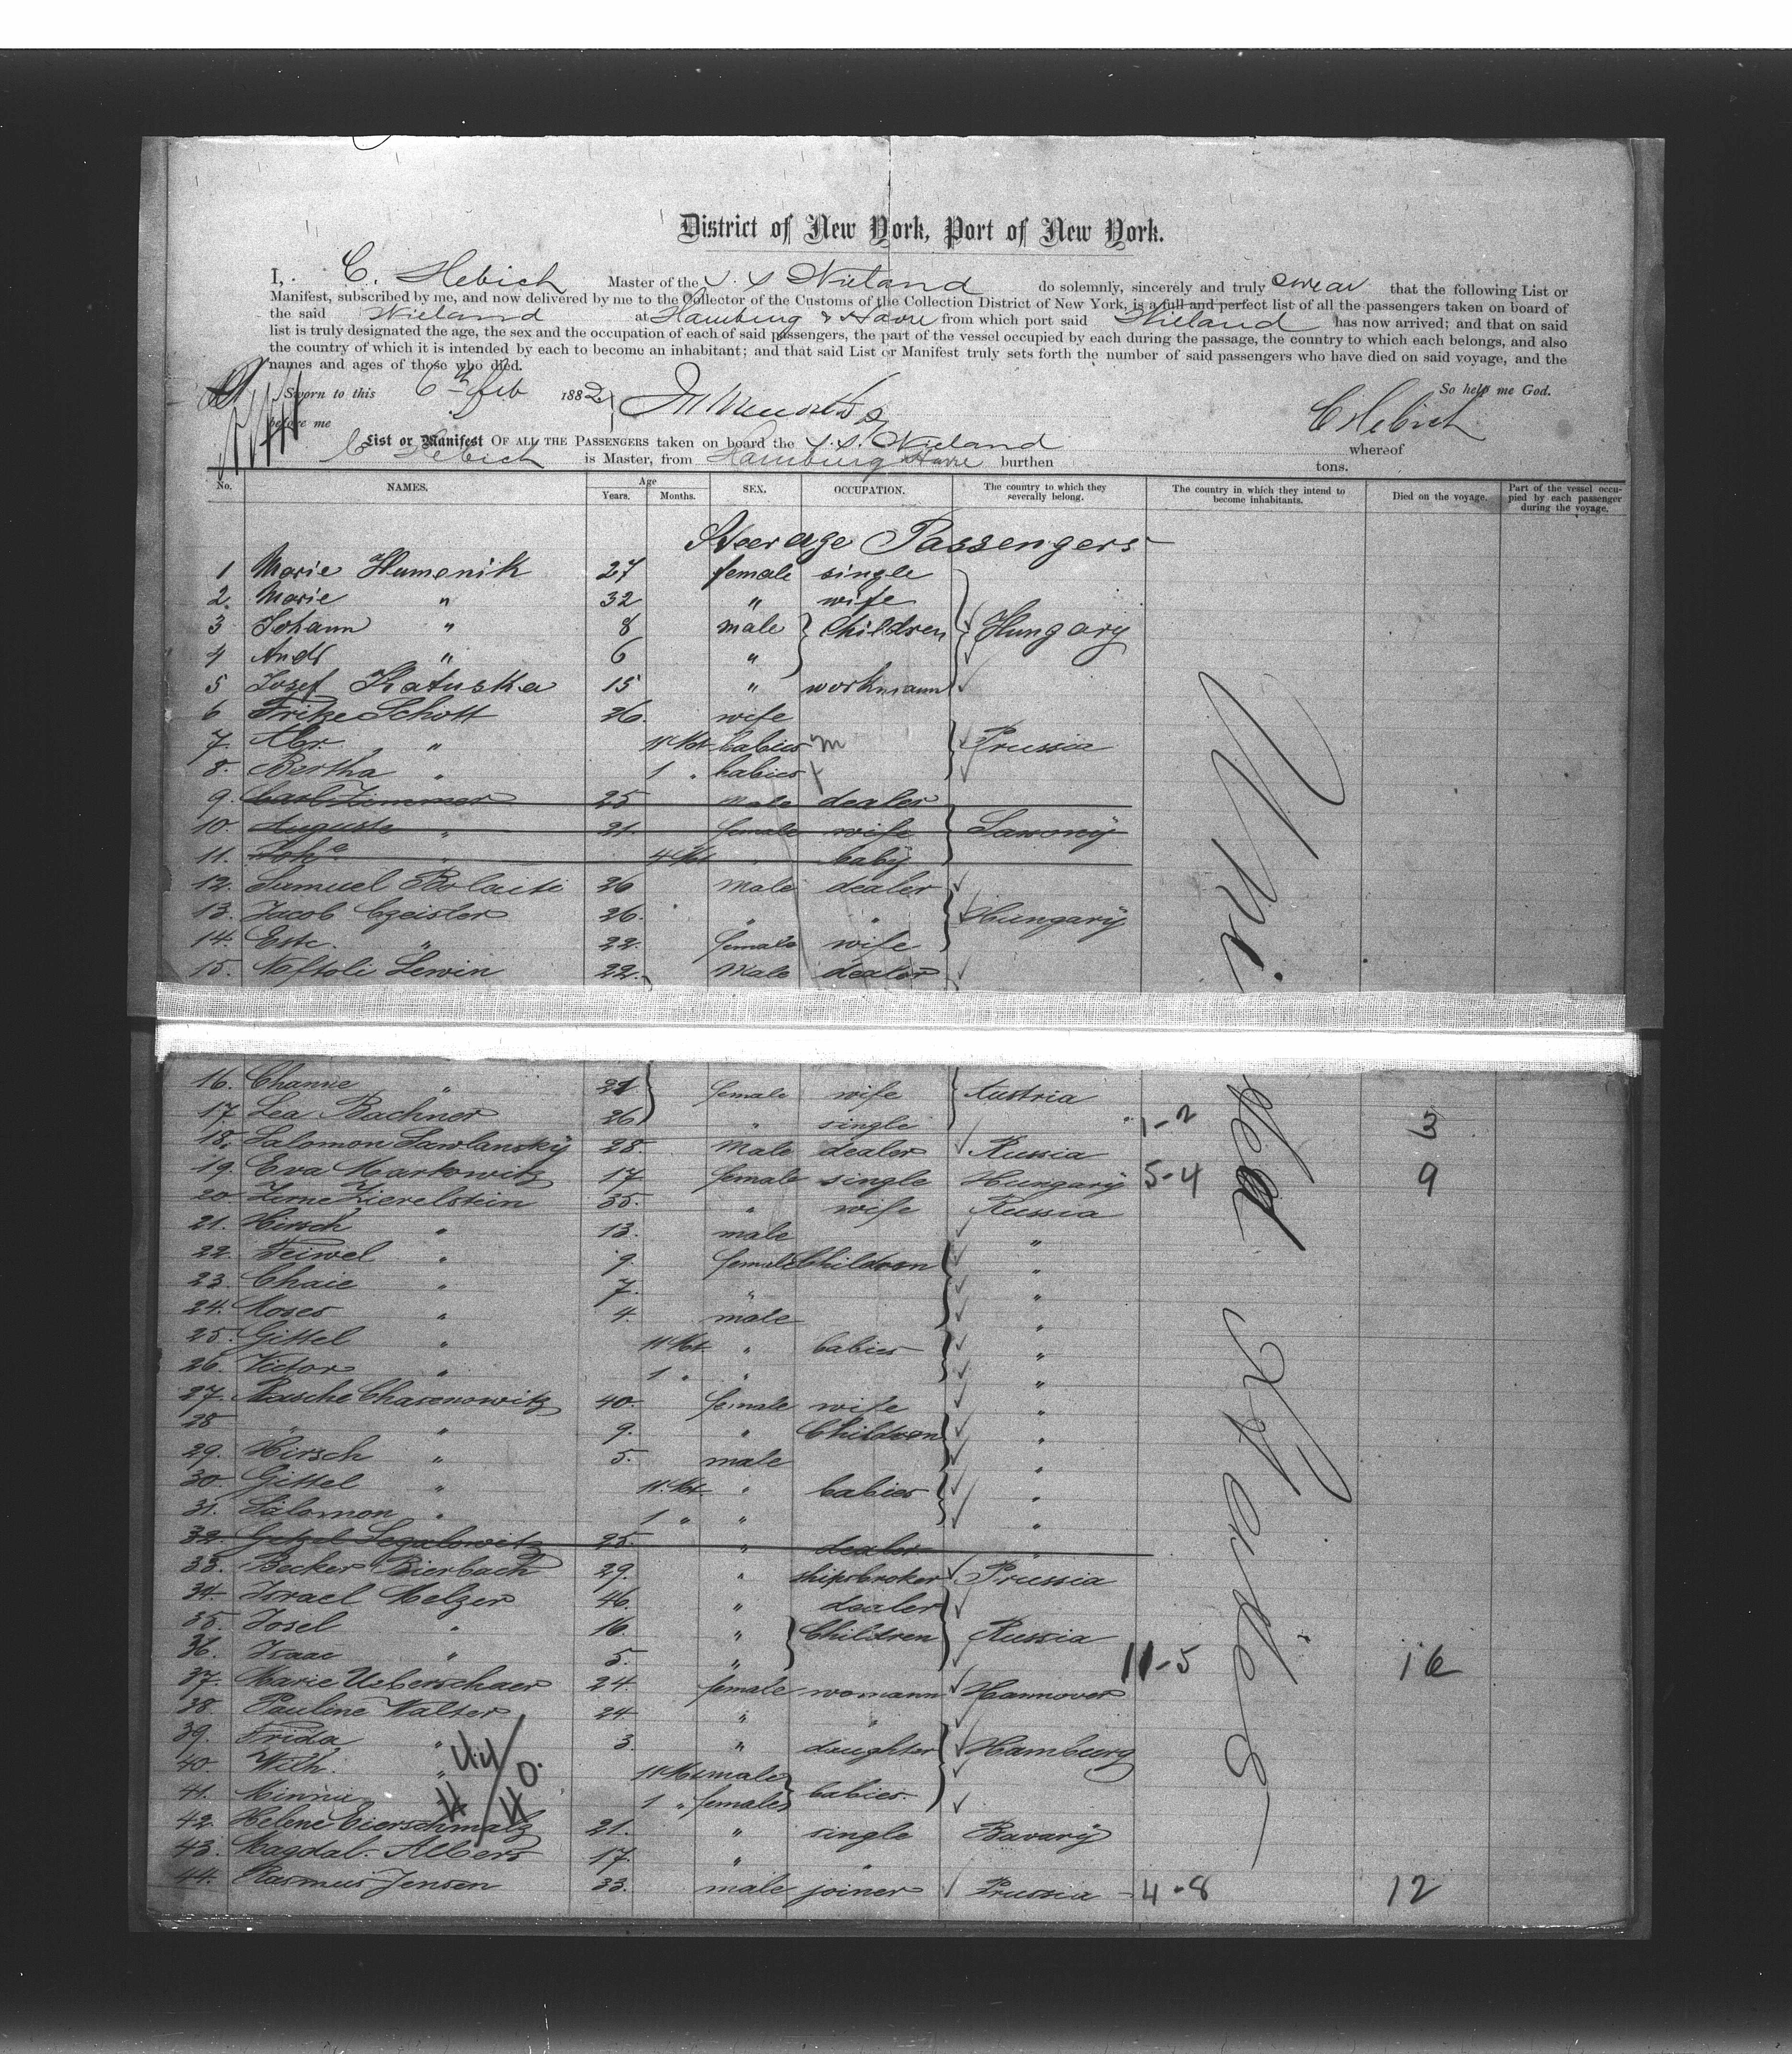 District of New York, Port of New York.
I, C. Hebich Master of the S. S. Wieland do solemnly, sincerely and truly swear that the following List or
Manifest, subscribed by me, and now delivered by me to the Collector of the Customs of the Collection District of New York, is a full and perfect list of all the passengers taken on board of
the said Wieland at Hamburg & Havre from which port said Wieland has now arrived; and that on said
list is truly designated the age, the sex and the occupation of each of said passengers, the part of the vessel occupied by each during the passage, the country to which each belongs, and also
the country of which it is intended by each to become an inhabitant; and that said List or Manifest truly sets forth the number of said passengers who have died on said voyage, and the
names and ages of those who died.
So help me God.
Sworn to this 6th Feb 1882
before me
C Hebich
List or Manifest OF ALL THE PASSENGERS taken on board the S. S. Wieland whereof
C Hebich is Master, from Hamburg Havre burthen tons.
No. NAMES. Age Years. Months. SEX. OCCUPATION. The country to which they severally belong. The country in which they intend to become inhabitants. Died on the voyage. Part of the vessel occupied by each passenger during the voyage.
Steerage Passengers
1 Marie Humenik 27 female single
2. Marie " 32 " wife
3 Johann " 8 male Children Hungary
4 " 6 "
5 Josef Katuska 15 " workmann
6 Fritze Schott 26. wife
7. " 11 Mt babies m Prussia
8. Bertha " 1 " babies
9. Carl Zimmer 25 male dealer
10. Auguste " 21. female wife Saxony
11. " 4 Mt " baby
12. Samuel 26 Male dealer
13. Jacob Czeisler 26. " " Hungary
14. Este. " 22. female wife
15. Naftoli Lewin 22. Male dealer
16. Channe " 21 female wife Austria
17. Lea Bachner 26 " single 1-2 3
18. Salomon 28. Male dealer Russia
19. Eva Markowitz 17 female single Hungary 5-4 9
20 35. " wife Russia
21. Hirsch " 13. male "
22. Feiwel " 9. female Children "
23. Chaie " 7. " "
24. Moses " 4. male "
25. Gittel " 11 Mt. " babies "
26. Victor " 1 " " "
27. Rasche Chasenowitz 40. female wife "
28 " " 9. " Children "
29. Hirsch " 5. male "
30. Gittel " 11. Mt. " babies "
31. Salomon " 1 " " "
32. Getzel Segalowitz 25. " dealer "
33. Becker Bierbach 29. " shipsbroker Prussia
34. Israel Melzer 46. " dealer
35. Josel " 16. " Children Russia
36. Isaac " 5. " 11-5 16
37. Marie Ueberschaer 24. female womann Hannover
38. Pauline Walter 24 " "
39. Frida " 3. " daughter Hamburg
40. Wilh. " 11 Mt male babies
41. Minnie " 1 " females
42. Helene Eierschmalz 21. " single Bavary
43. Magdal. Albers 17. " "
44. Rasmus Jensen 33. male joiner Prussia 4-8 12
United States